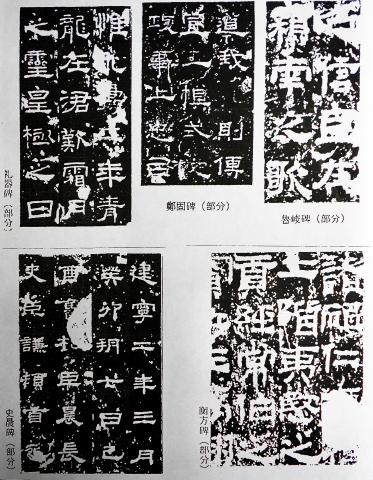 惟永壽二年青
龍在涒歎霜月
之靈皇極之日
礼器碑（部分）
我則傳
模式從
政事上忠
鄭固碑（部分）
南之歌
魯峻碑（部分）
建寧二年三月
癸卯朔七日己
酉魯相臣晨長
史臣謙頓首死
史晨碑（部分）
仁
上階夷愍之
經常伯之
衡方碑（部分）